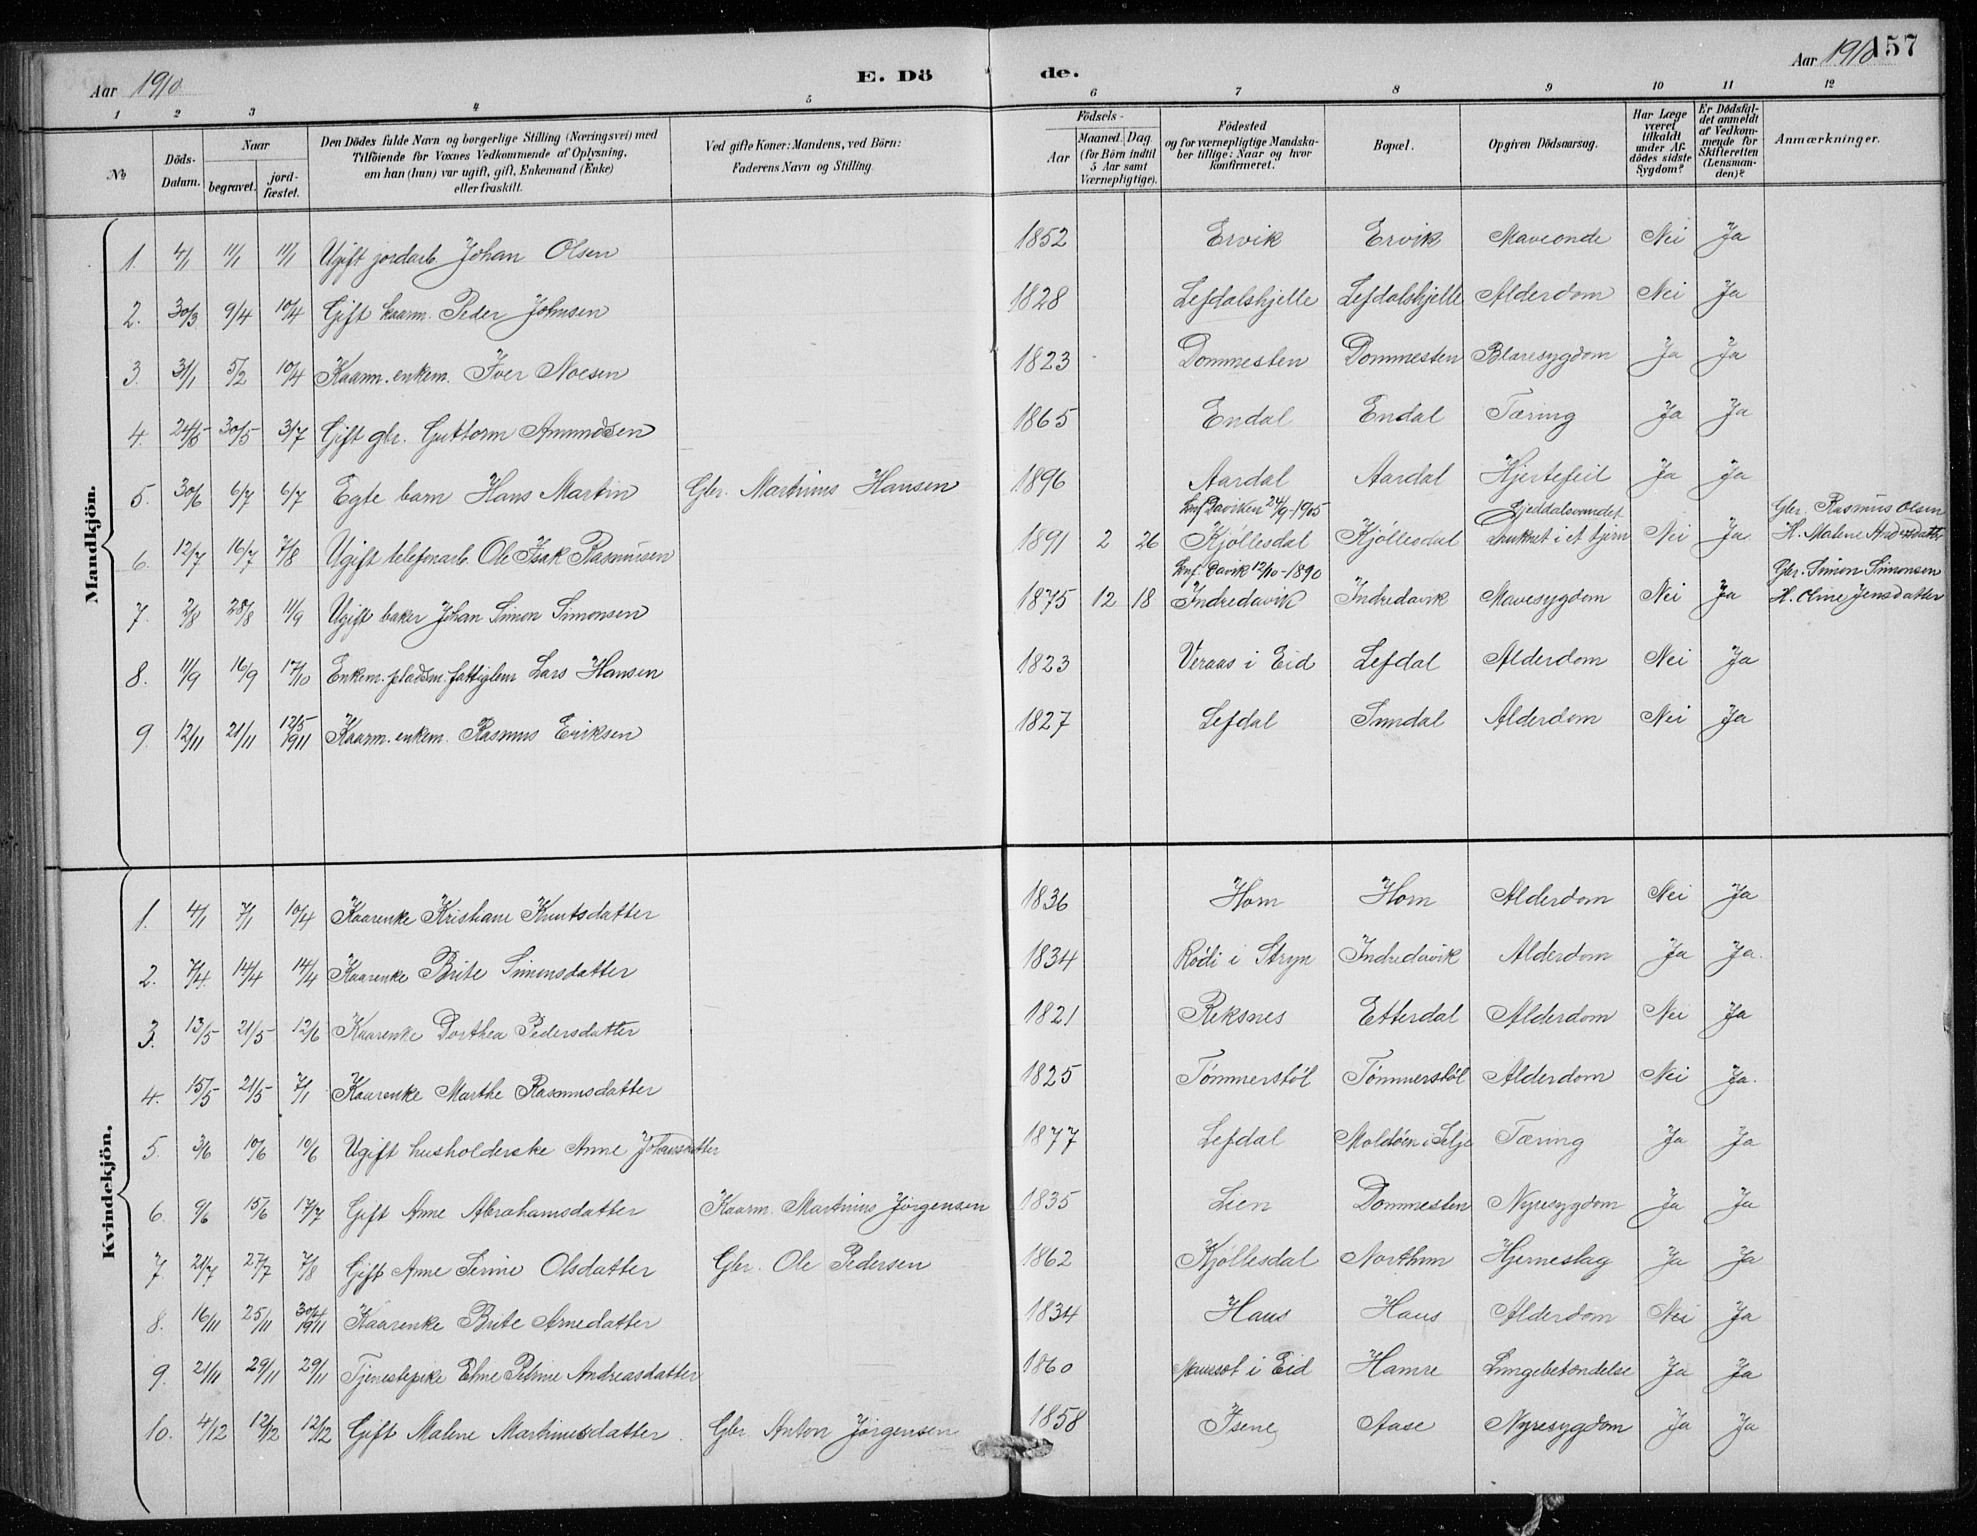 Aar 1910 E. Döde. Aar 1910 157
1 2 3 4 5 6 7 8 9 10 11 12
№ Döds-Datum. Naar begravet. jordfæstet. Den Dödes fulde Navn og borgerlige Stilling (Næringsvei) med Tilföiende for Voxnes Vedkommende af Oplysning, om han (hun) var ugift, gift, Enkemand (Enke) eller fraskilt. Ved gifte Koner: Mandens, ved Börn: Faderens Navn og Stilling. Födsels- Aar Maaned. Dag. (for Börn indtil 5 Aar samt Værnepligtige). Födested og for værnepligtige Mandskaber tillige: Naar og hvor konfirmeret. Bopæl. Opgiven Dödsaarsag. Har Læge været tilkaldt under Afdödes sidste Sygdom? Er Dödsfaldet anmeldt af Vedkommende for Skifteretten (Lensmanden)? Anmærkninger.
Mandkjön.
1. 4/1 11/1 11/1 Ugift jordarb. Johan Olsen 1852 Ervik Ervik Maveonde Nei Ja
2. 30/3 9/4 10/4 Gift kaarm. Peder Johnsen 1828 Lefdalshjelle Lefdalshjelle Alderdom Nei Ja
3. 31/1 5/2 10/4 Kaarm. enkem. Iver Moesen 1823 Dommesten Dommesten Blæresygdom Ja Ja
4. 24/5 30/5 3/7 Gift gbr. Guttorm Amundsen 1865 Endal Endal Tæring Ja Ja
5. 30/6 6/7 6/7 Egte barn Hans Martin Gbr. Martinus Hansen 1896 Aardal Aardal Hjertefeil Ja Ja
6. 12/7 16/7 7/8 Ugift telefonarb. Ole Isak Rasmussen 1891 2 26 Konf Daviken 24/9-1905 Kjøllesdal Kjøllesdal Gjeddalsvandet Druknet i et tjern Nei Ja Gbr. Rasmus Olsen H. Malene
7. 2/8 28/8 11/9 Ugift baker Johan Simon Simonsen 1875 12 18 Konf. Davik 12/10-1890 Indredavik Indredavik Mavesygdom Nei Ja Gbr. Simon Simonsen H. Oline Jensdatter
8. 11/9 16/9 17/10 Enkem. pladsm. fattiglem Lars Hansen 1823 Veraas i Eid Lefdal Alderdom Nei Ja
9. 12/11 21/11 12/5 1911 Kaarm. enkem. Rasmus Eriksen 1827 Lefdal Sundal Alderdom Nei Ja
Kvindekjön.
1. 4/1 7/1 10/4 Kaarenke Kristiane Knutsdatter 1836 Horn Horn Alderdom Nei Ja
2. 7/4 14/4 14/4 Kaarenke Brite Simonsdatter 1834 Rødi i Stryn Indredavik Alderdom Ja Ja.
3. 13/5 21/5 12/6 Kaarenke Dorthea Pedersdatter 1821 Reksnes Etterdal Alderdom Nei Ja
4. 15/5 21/5 7/1 Kaarenke Marthe Rasmusdatter 1825 Tømmerstøl Tømmerstøl Alderdom Nei Ja.
5. 3/6 10/6 10/6 Ugift husholderske Anne Johansdatter 1877 Lefdal Moldøen i Selje Tæring Ja Ja
6. 9/6 15/6 17/7 Gift Anne Abrahamsdatter Kaarm. Martinus Jørgensen 1835 Lien Dommesten Nyresygdom Ja Ja
7. 21/7 27/7 7/8 Gift Anne Serine Olsdatter Gbr. Ole Pedersen 1862 Kjøllesdal Northun Hjerneslag Ja Ja
8. 16/11 25/11 30/4 1911 Kaarenke Brite Arnedatter 1834 Haus Haus Alderdom Nei Ja
9. 21/11 29/11 29/11 Tjenestepike Eline Petrine Andreasdatter 1860 Maurset i Eid Hamre Lungebetændelse Ja Ja
10. 4/12 12/12 12/12 Gift Malene Martinusdatter. Gbr. Anton Jørgensen 1858 Isene Aase Nyresygdom Ja Ja